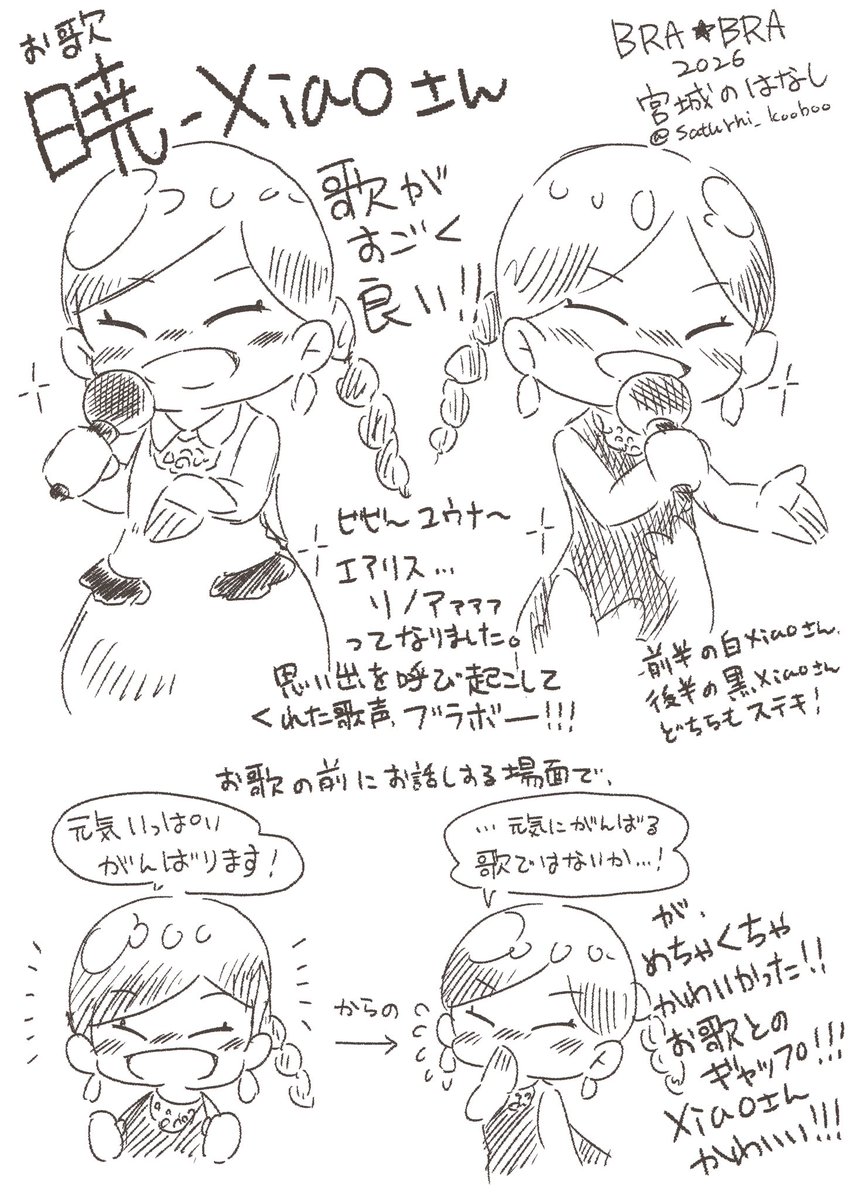 お歌
暁-Xiaoさん
BRA★BRA
2026
宮城のはなし
@saturni_kooboo
歌が
すごく
良い!!
ビビ〜ユウナ〜
エアリス…
リノアァァァ
ってなりました。
思い出を呼び起こして
くれた歌声、ブラボー!!!
前半の白Xiaoさん、
後半の黒Xiaoさん
どちらもステキ!
お歌の前にお話しする場面で、
元気いっぱい
がんばります!
からの
…元気にがんばる
歌ではないか…!
が、
めちゃくちゃ
かわいかった!!
お歌との
ギャップ!!!
Xiaoさん
かわいい!!!